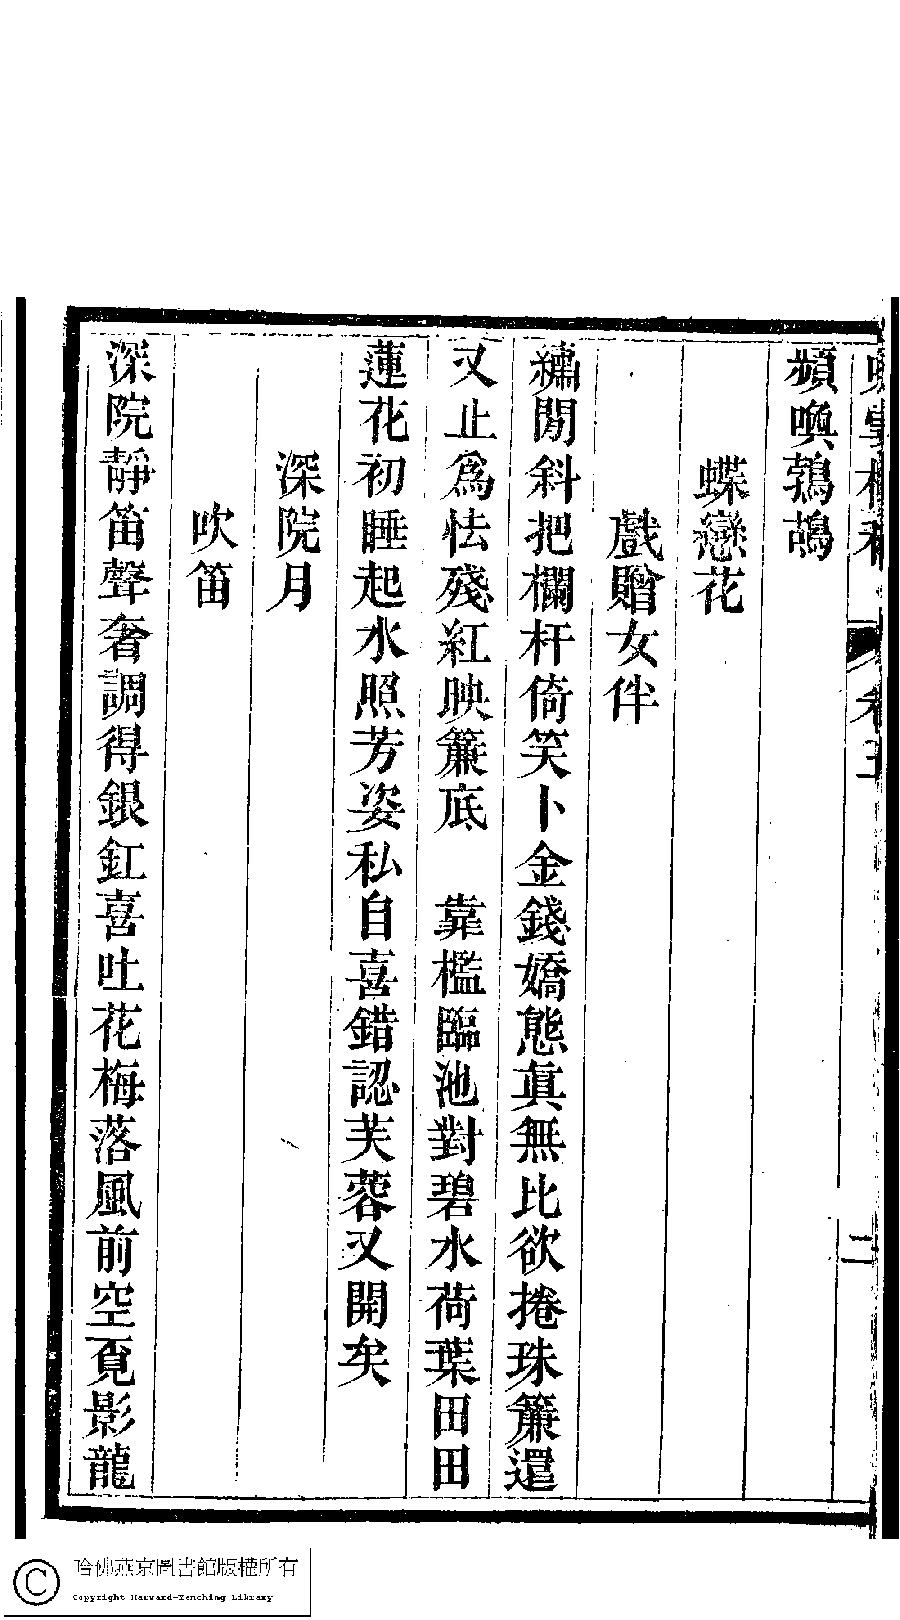 卷五
二
頻喚鵓鴣
蝶戀花
戲贈女伴
繡閒斜把欄杆倚笑卜金錢嬌態眞無比欲捲珠簾還
又止爲怯殘紅映簾底　靠檻臨池對碧水荷葉田田
蓮花初睡起水照芳姿私自喜錯認芙蓉又開矣
深院月
吹笛
深院靜笛聲奢調得銀釭喜吐花梅落風前空覔影龍
哈佛燕京圖書館版權所有
Copyright Harvard-Yenching Library